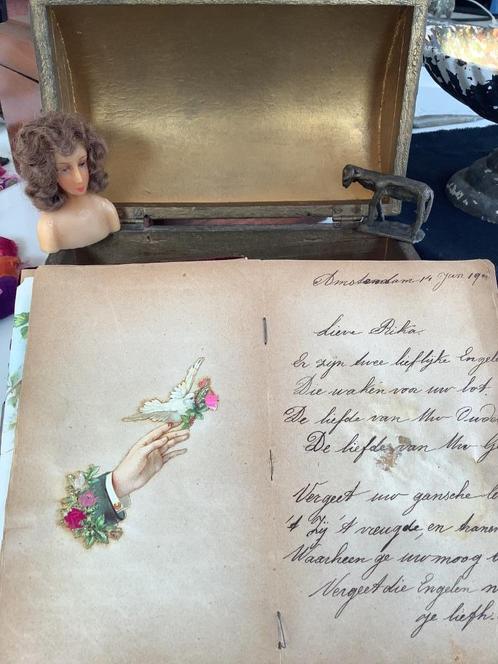 Amsterdam 14 Jun 19
Lieve Rika.
Er zijn twee lieflijke Engele
Die waken voor uw lot.
De liefde van Uw Oude
De liefde van Uw G
Vergeet uw gansche le
't Zij 't vreugde, en tranen
Waarheen ge uw moog
Vergeet die Engelen n
oje liefh.